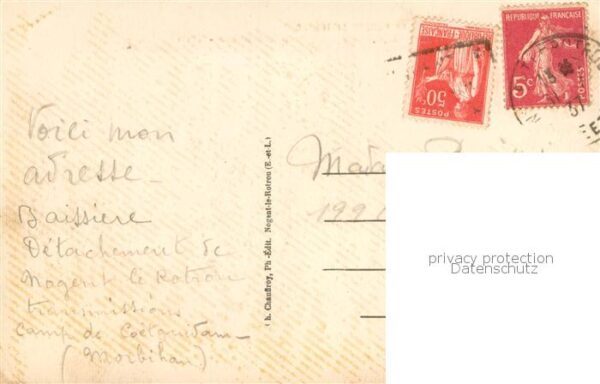 Voici mon
adresse -
Baissiere
Détachement de
Nogent le Rotrou
transmissions
camp de Coëtquidan
(Morbihan)
Ch. Chauffroy, Ph.-Édit. Nogent-le-Rotrou (E.-et-L.)
POSTES
50c
REPUBLIQUE FRANÇAISE
REPUBLIQUE FRANÇAISE
5c
POSTES
37
199
privacy protection
Datenschutz